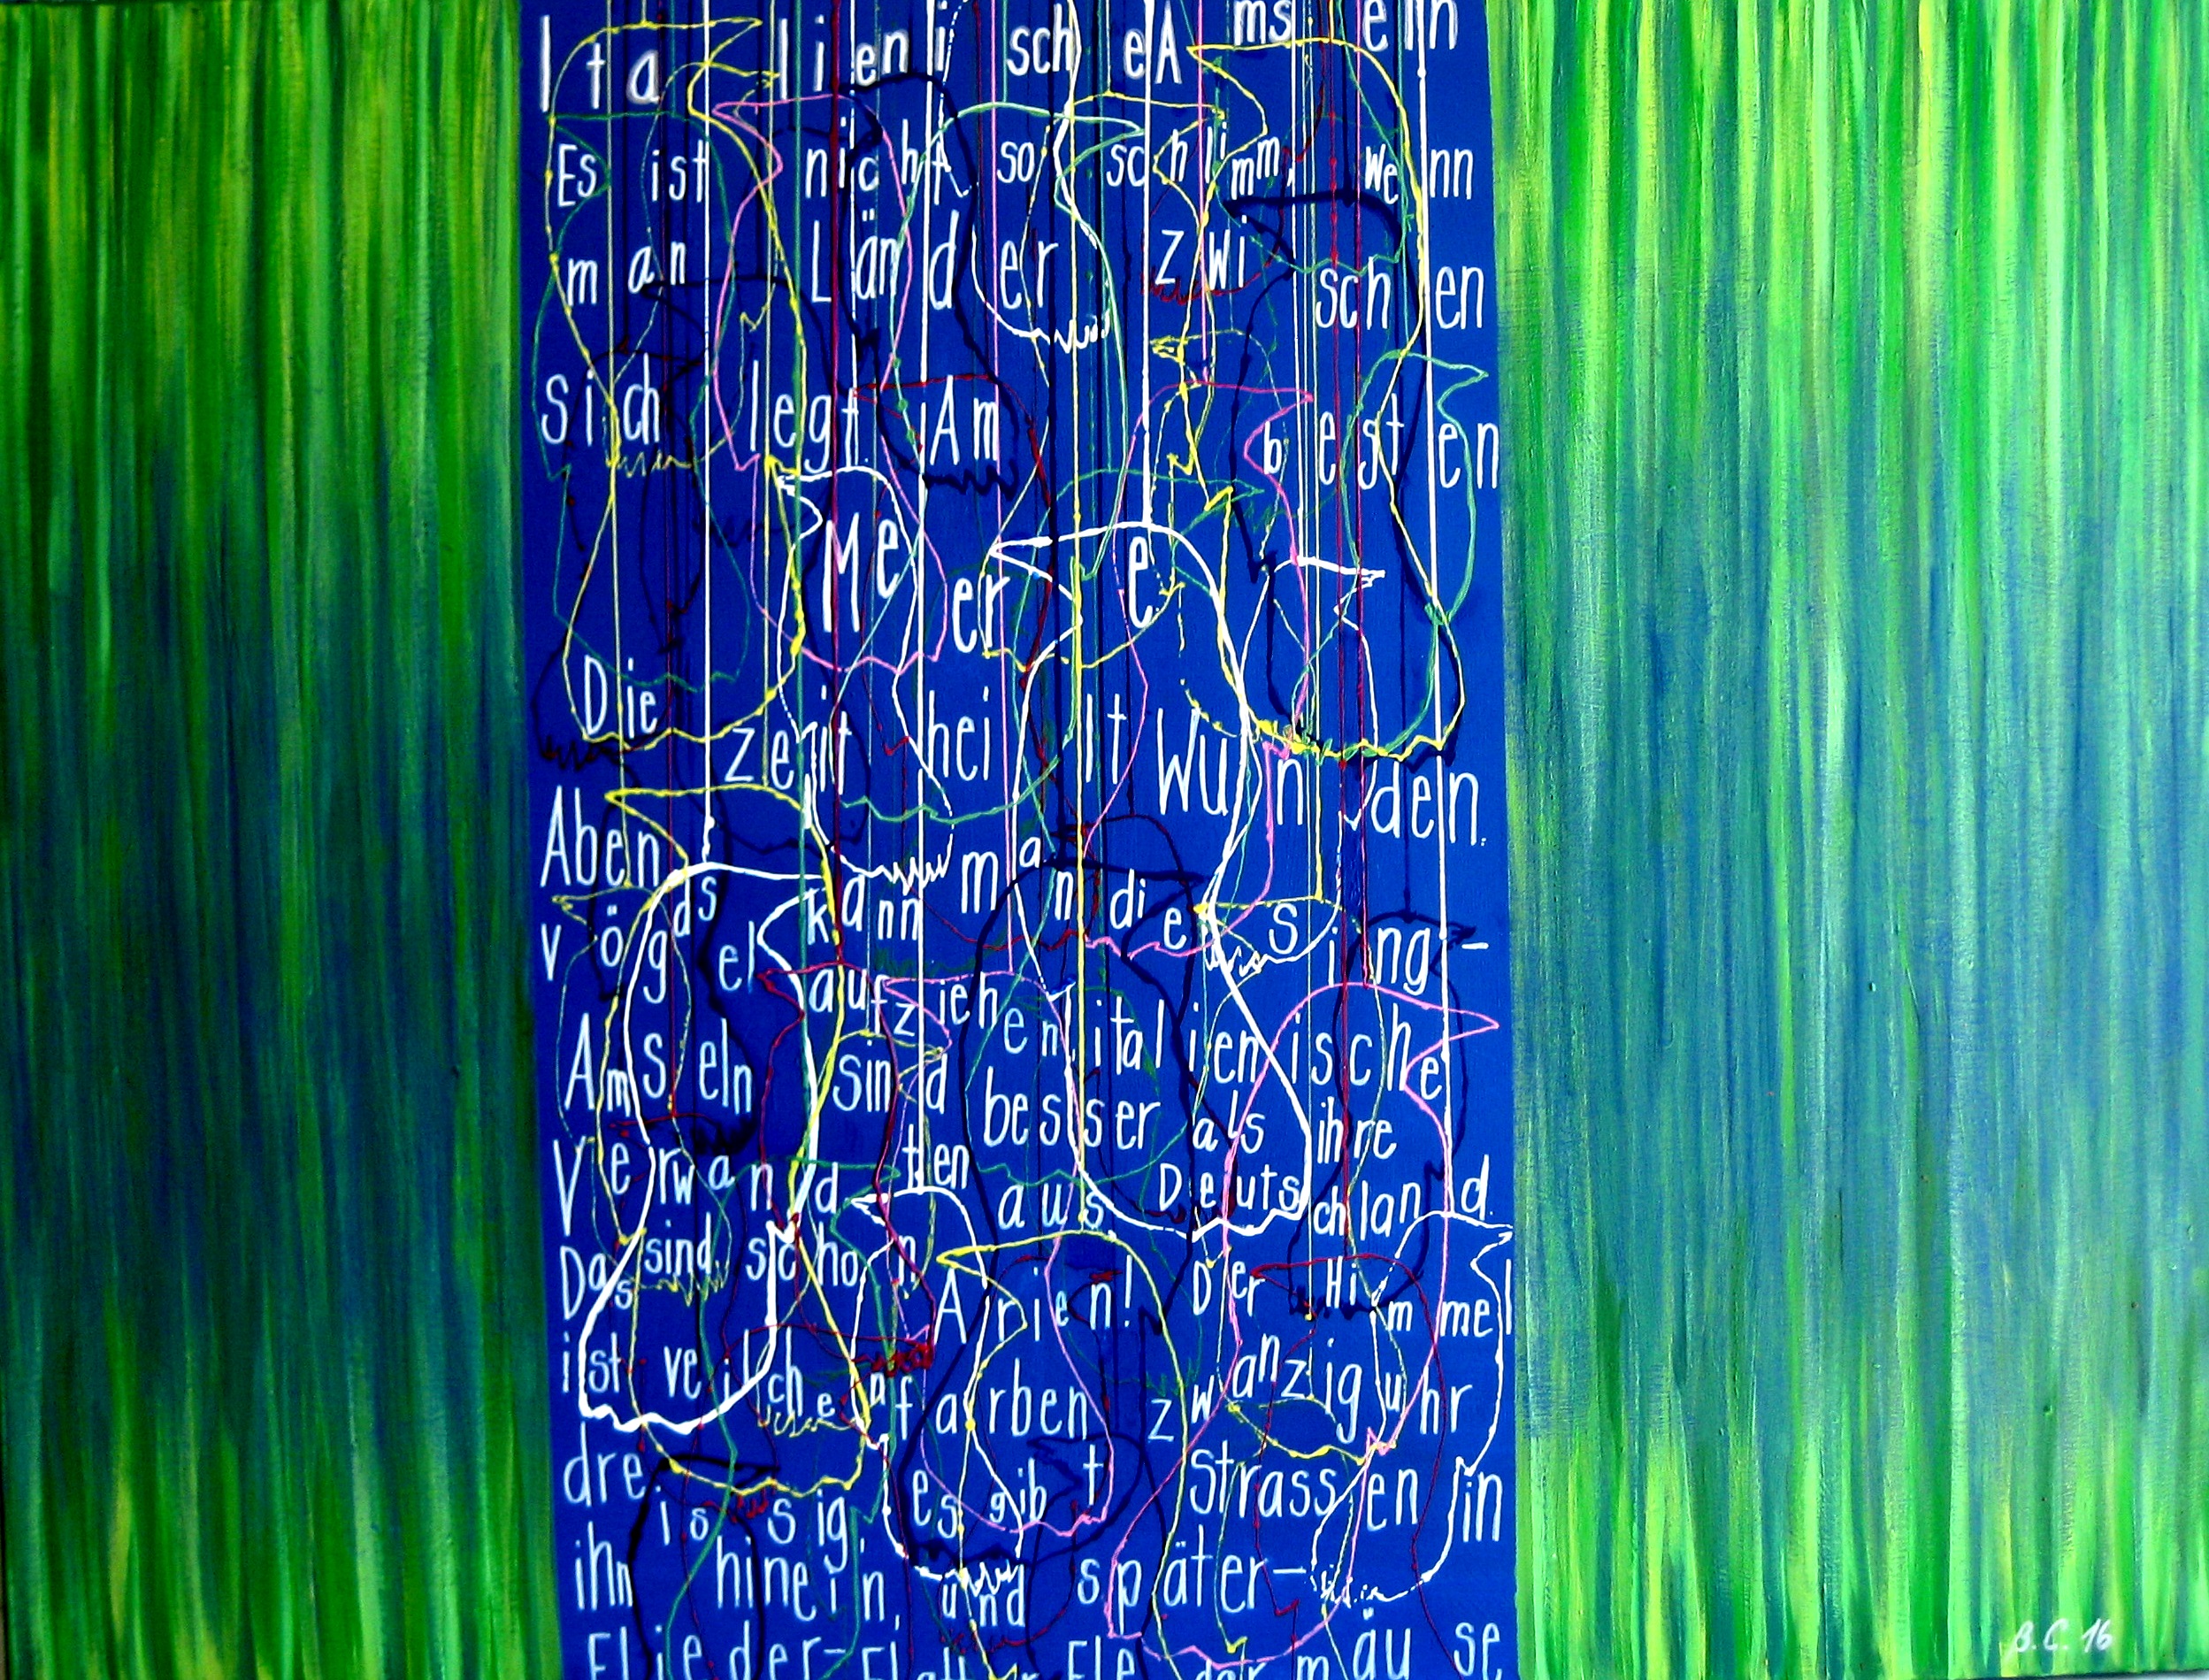 Italienische Amseln
Es ist nicht so schlimm, wenn
man Länder zwischen
sich legt. Am besten
Meere
Die zeit heilt Wunden.
Abends kann man die Sing-
vögel aufziehen, italienische
Amseln sind besser als ihre
Verwandten aus Deutschland.
Das sind schon Arien! Der Himmel
ist veilchenfarben zwanzig uhr
dreissig, es gibt Strassen in
ihn hinein, und später-
Flieder-Flatter Fledermäuse
B.C. 16